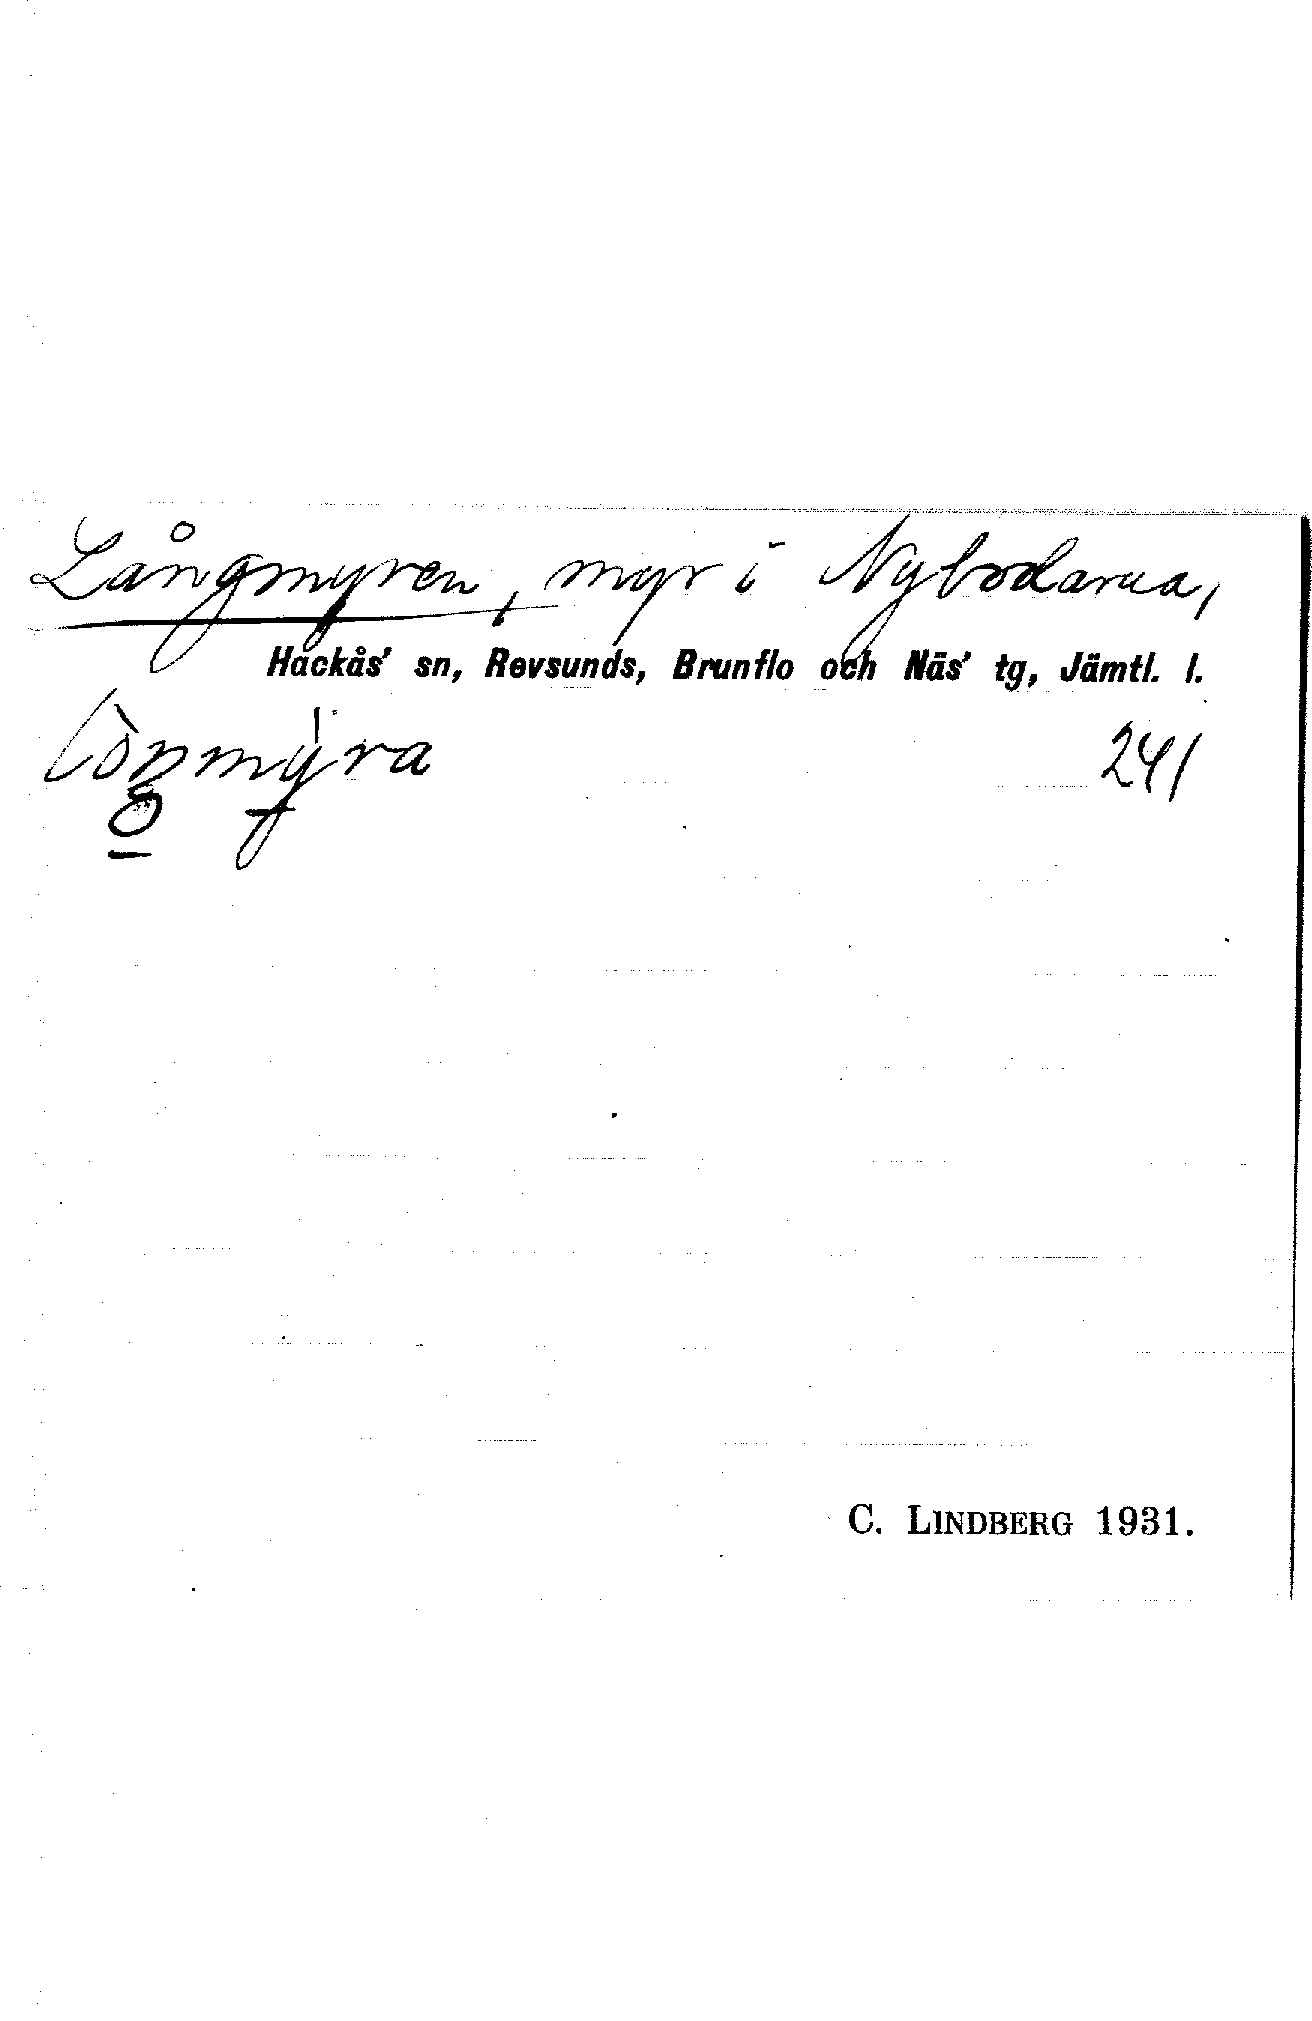 Långmyren, myr i Nybodarna,
Hackås' sn, Revsunds, Brunflo och Näs' tg, Jämtl. l.
241
C. LINDBERG 1931.